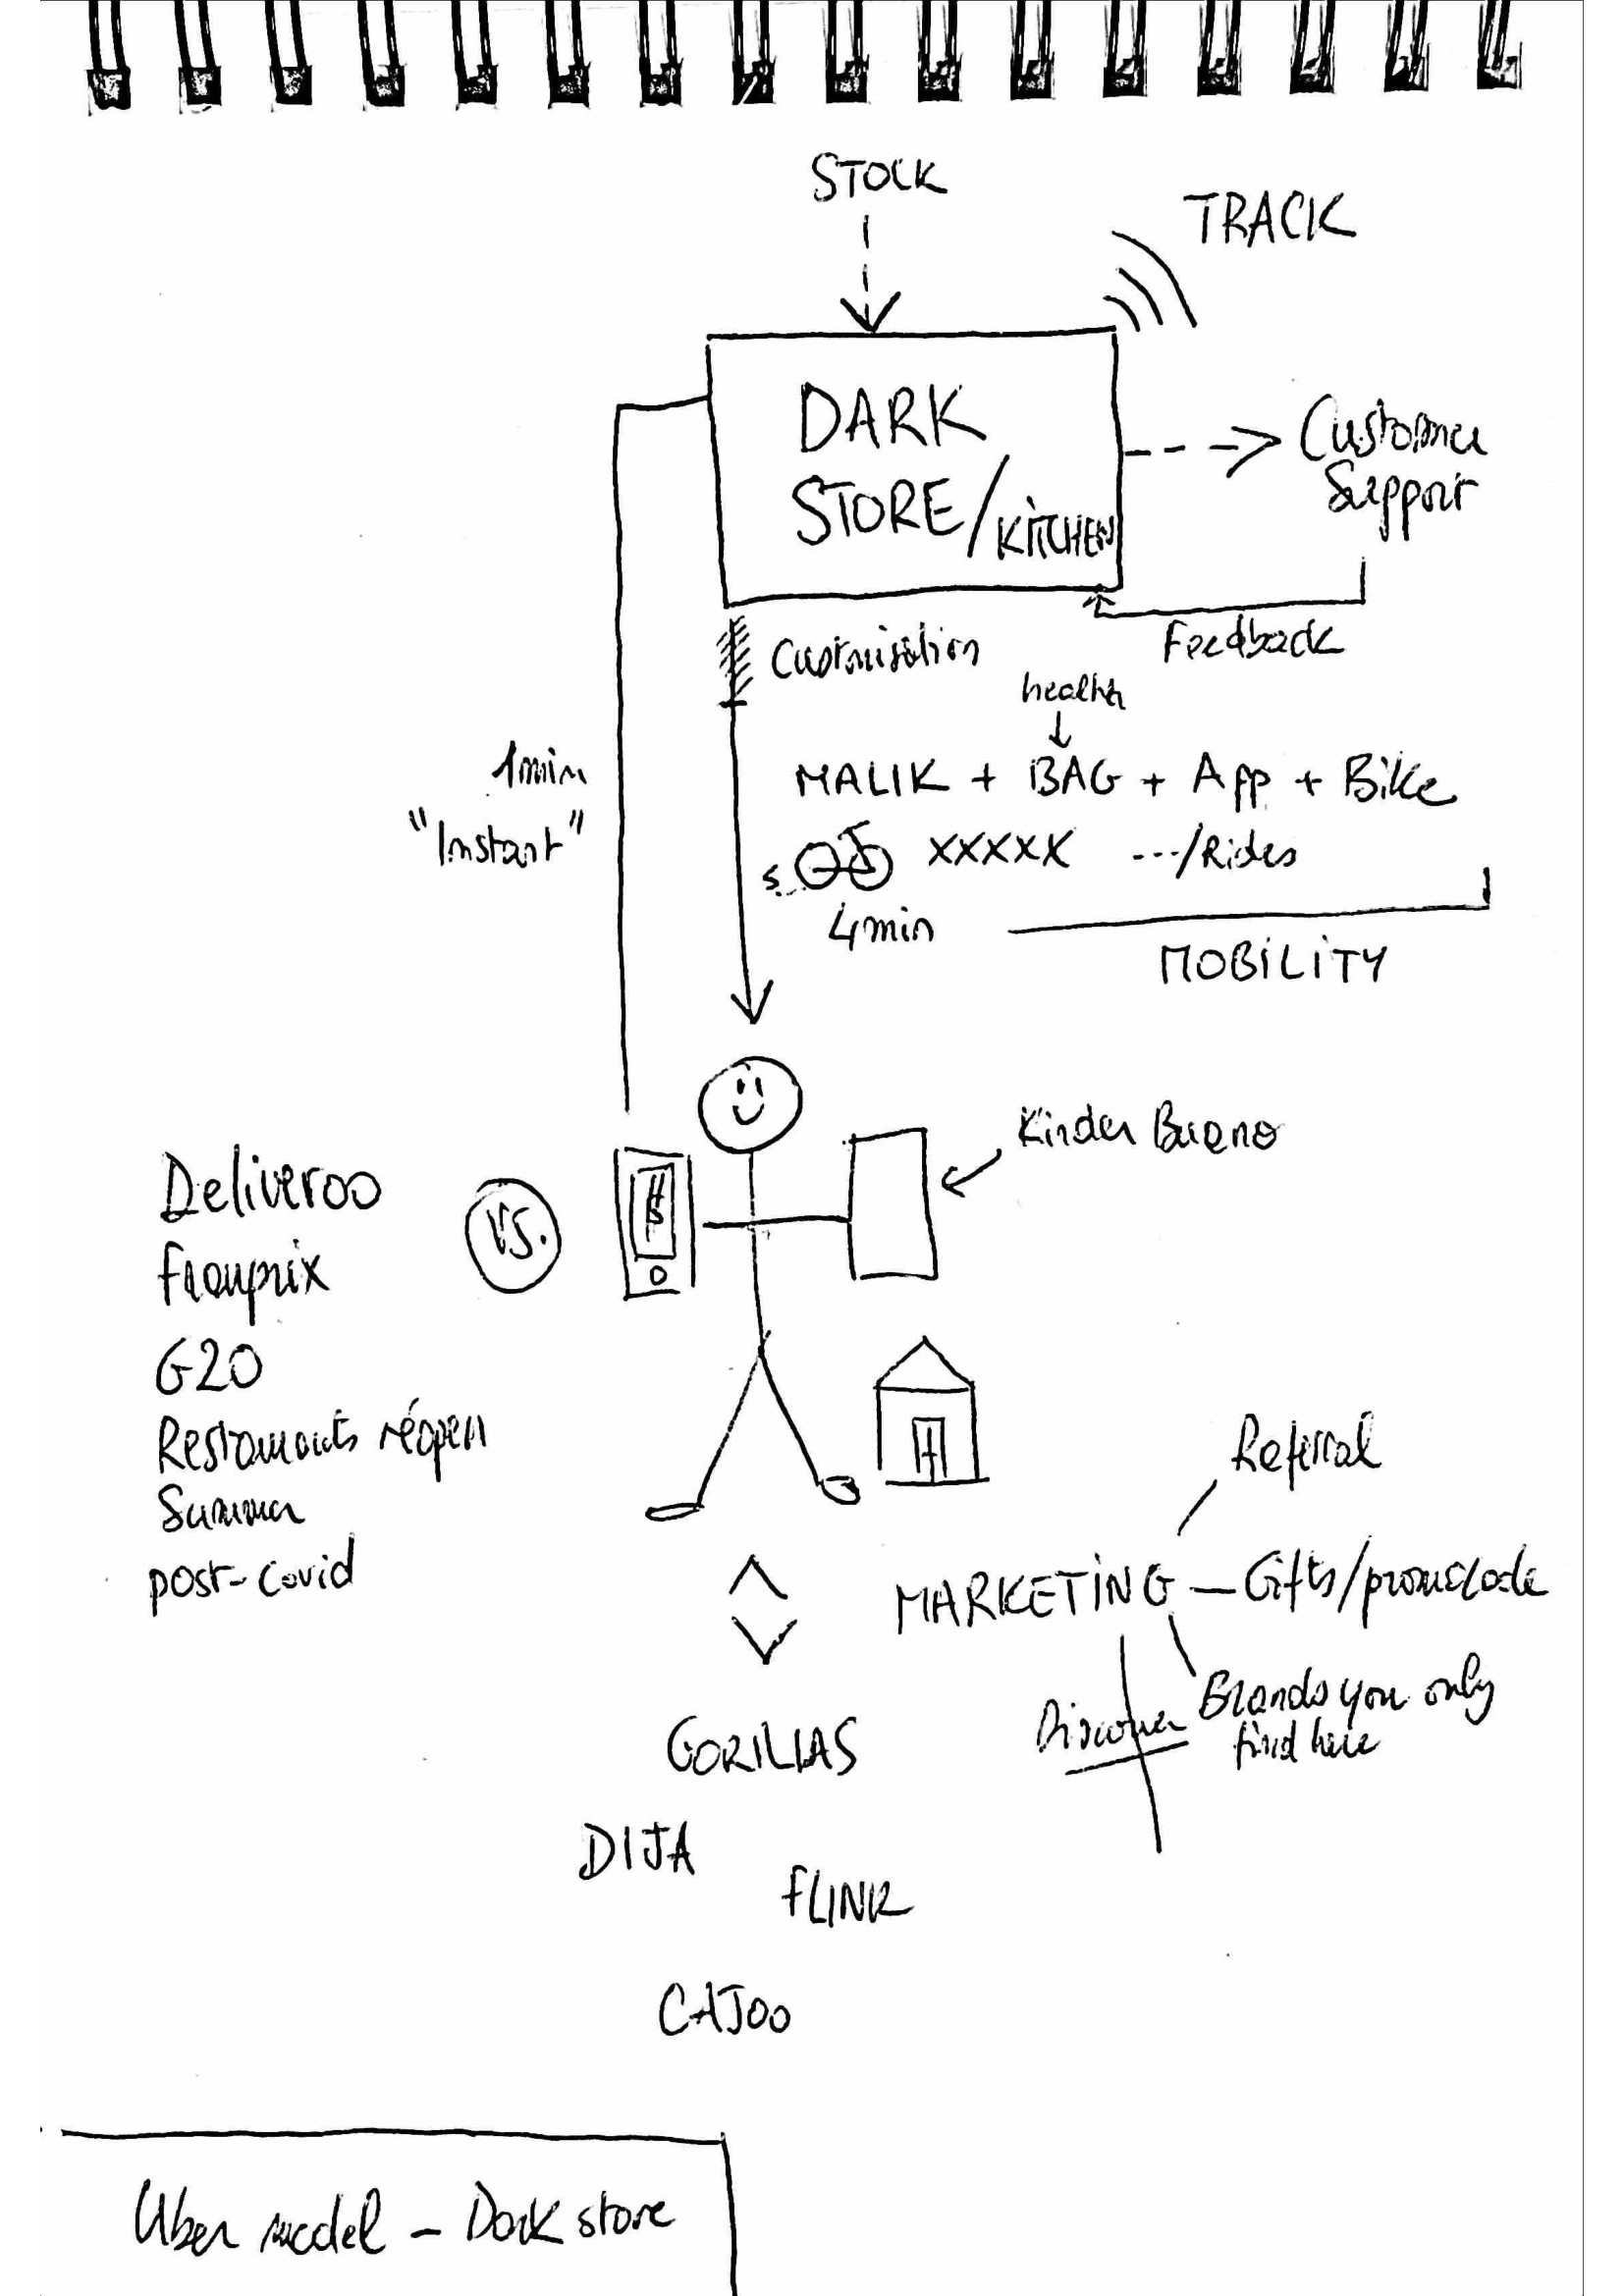 STOCK
TRACK
DARK
STORE/KITCHEN
Customer
Support
Feedback
Customisation
health
MALIK + BAG + App + Bike
XXXXX ---/Rides
4min
MOBILITY
1min
"Instant"
Kinder Bueno
Deliveroo
VS.
G20
Restaurants réopen
Summer
post-covid
Referral
MARKETING — Gifts/promocode
Discover
Brands you only
find here
GORILLAS
DIJA
FLINK
CAJOO
Uber model - Dark store